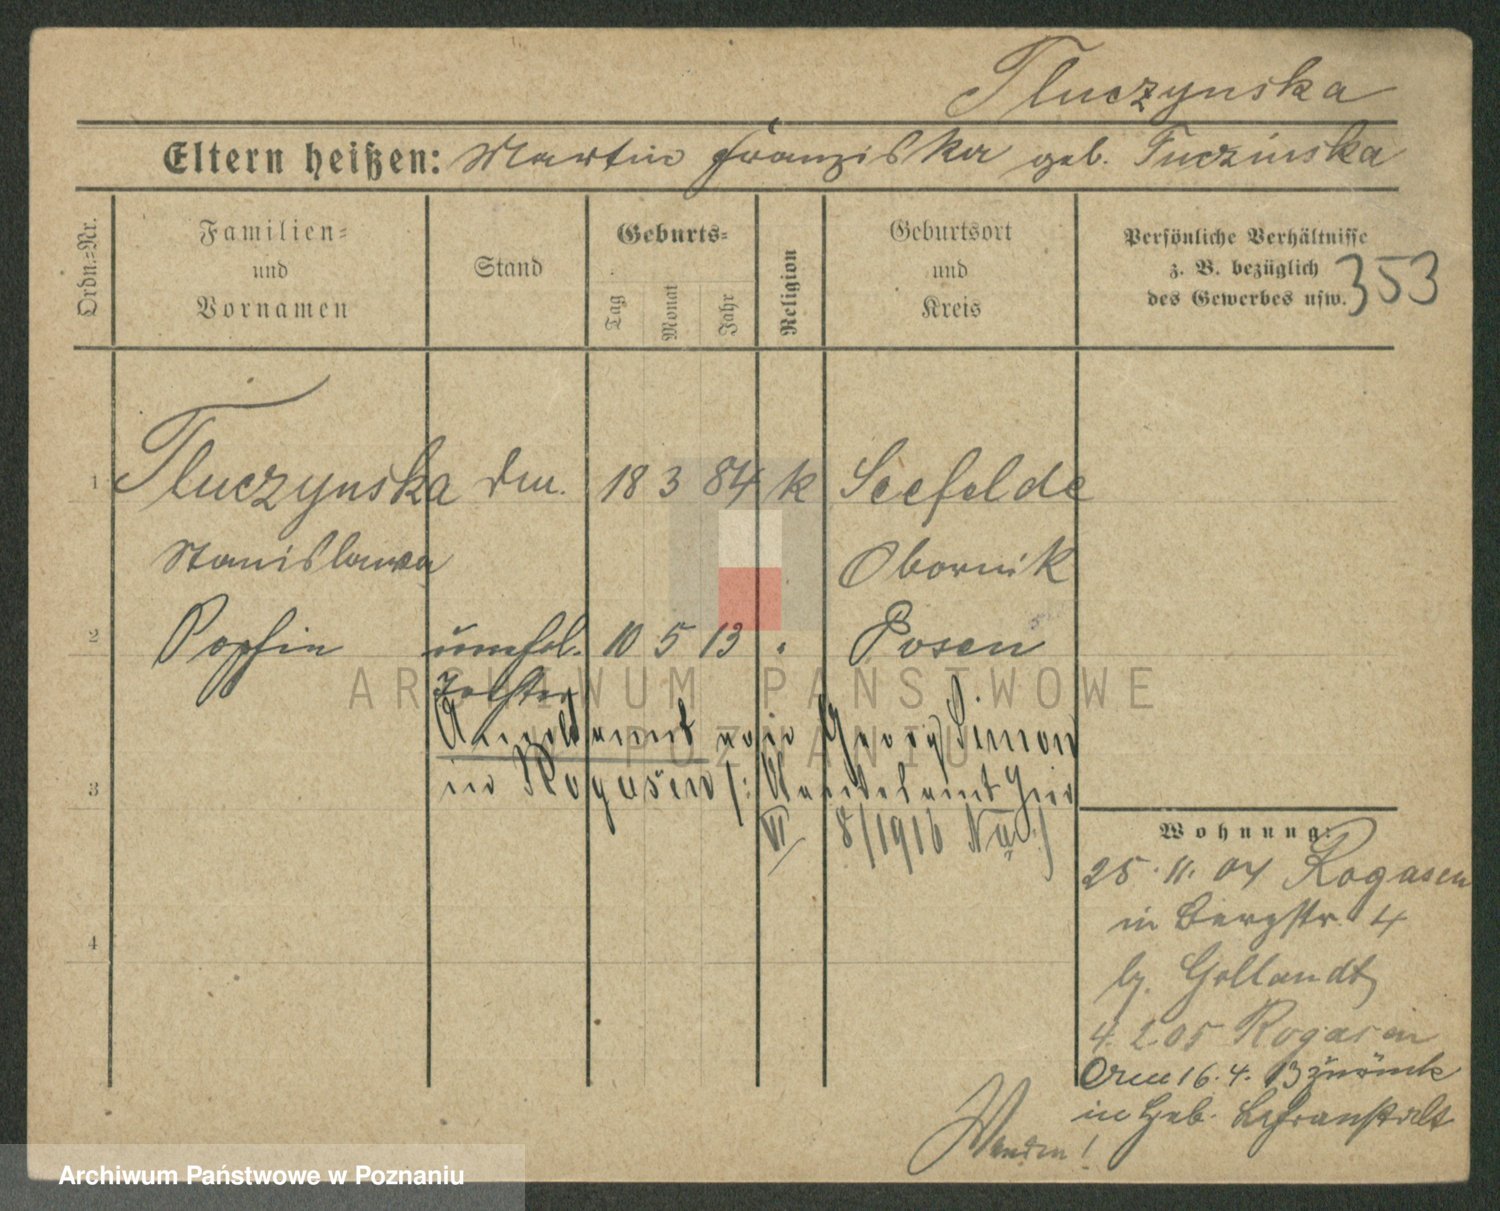 Tluczynska
Eltern heißen: Martin Franziska geb. Tuczinska
Ordn.=Nr.
Familien=
und
Vornamen
Stand
Geburts=
Tag
Monat
Jahr
Religion
Geburtsort
und
Kreis
Persönliche Verhältnisse
z. B. bezüglich
des Gewerbes usw.
353
1 Tluczynska 18 3 84 k Seefelde
Stanislawa Obornik
2 Sophie unehel. 10 5 13 " Posen
Tochter
Georg Simon
3 in Rogasen
VI 8/1916
4
Wohnung:
25.11.04 Rogasen
in Bergstr. 4
b. Gollandt
4.2.05 Rogasen
Am 16.4.13 zurück
in Heb. Lehranstalt
Wenden!
ARCHIWUM PAŃSTWOWE
W POZNANIU
Archiwum Państwowe w Poznaniu